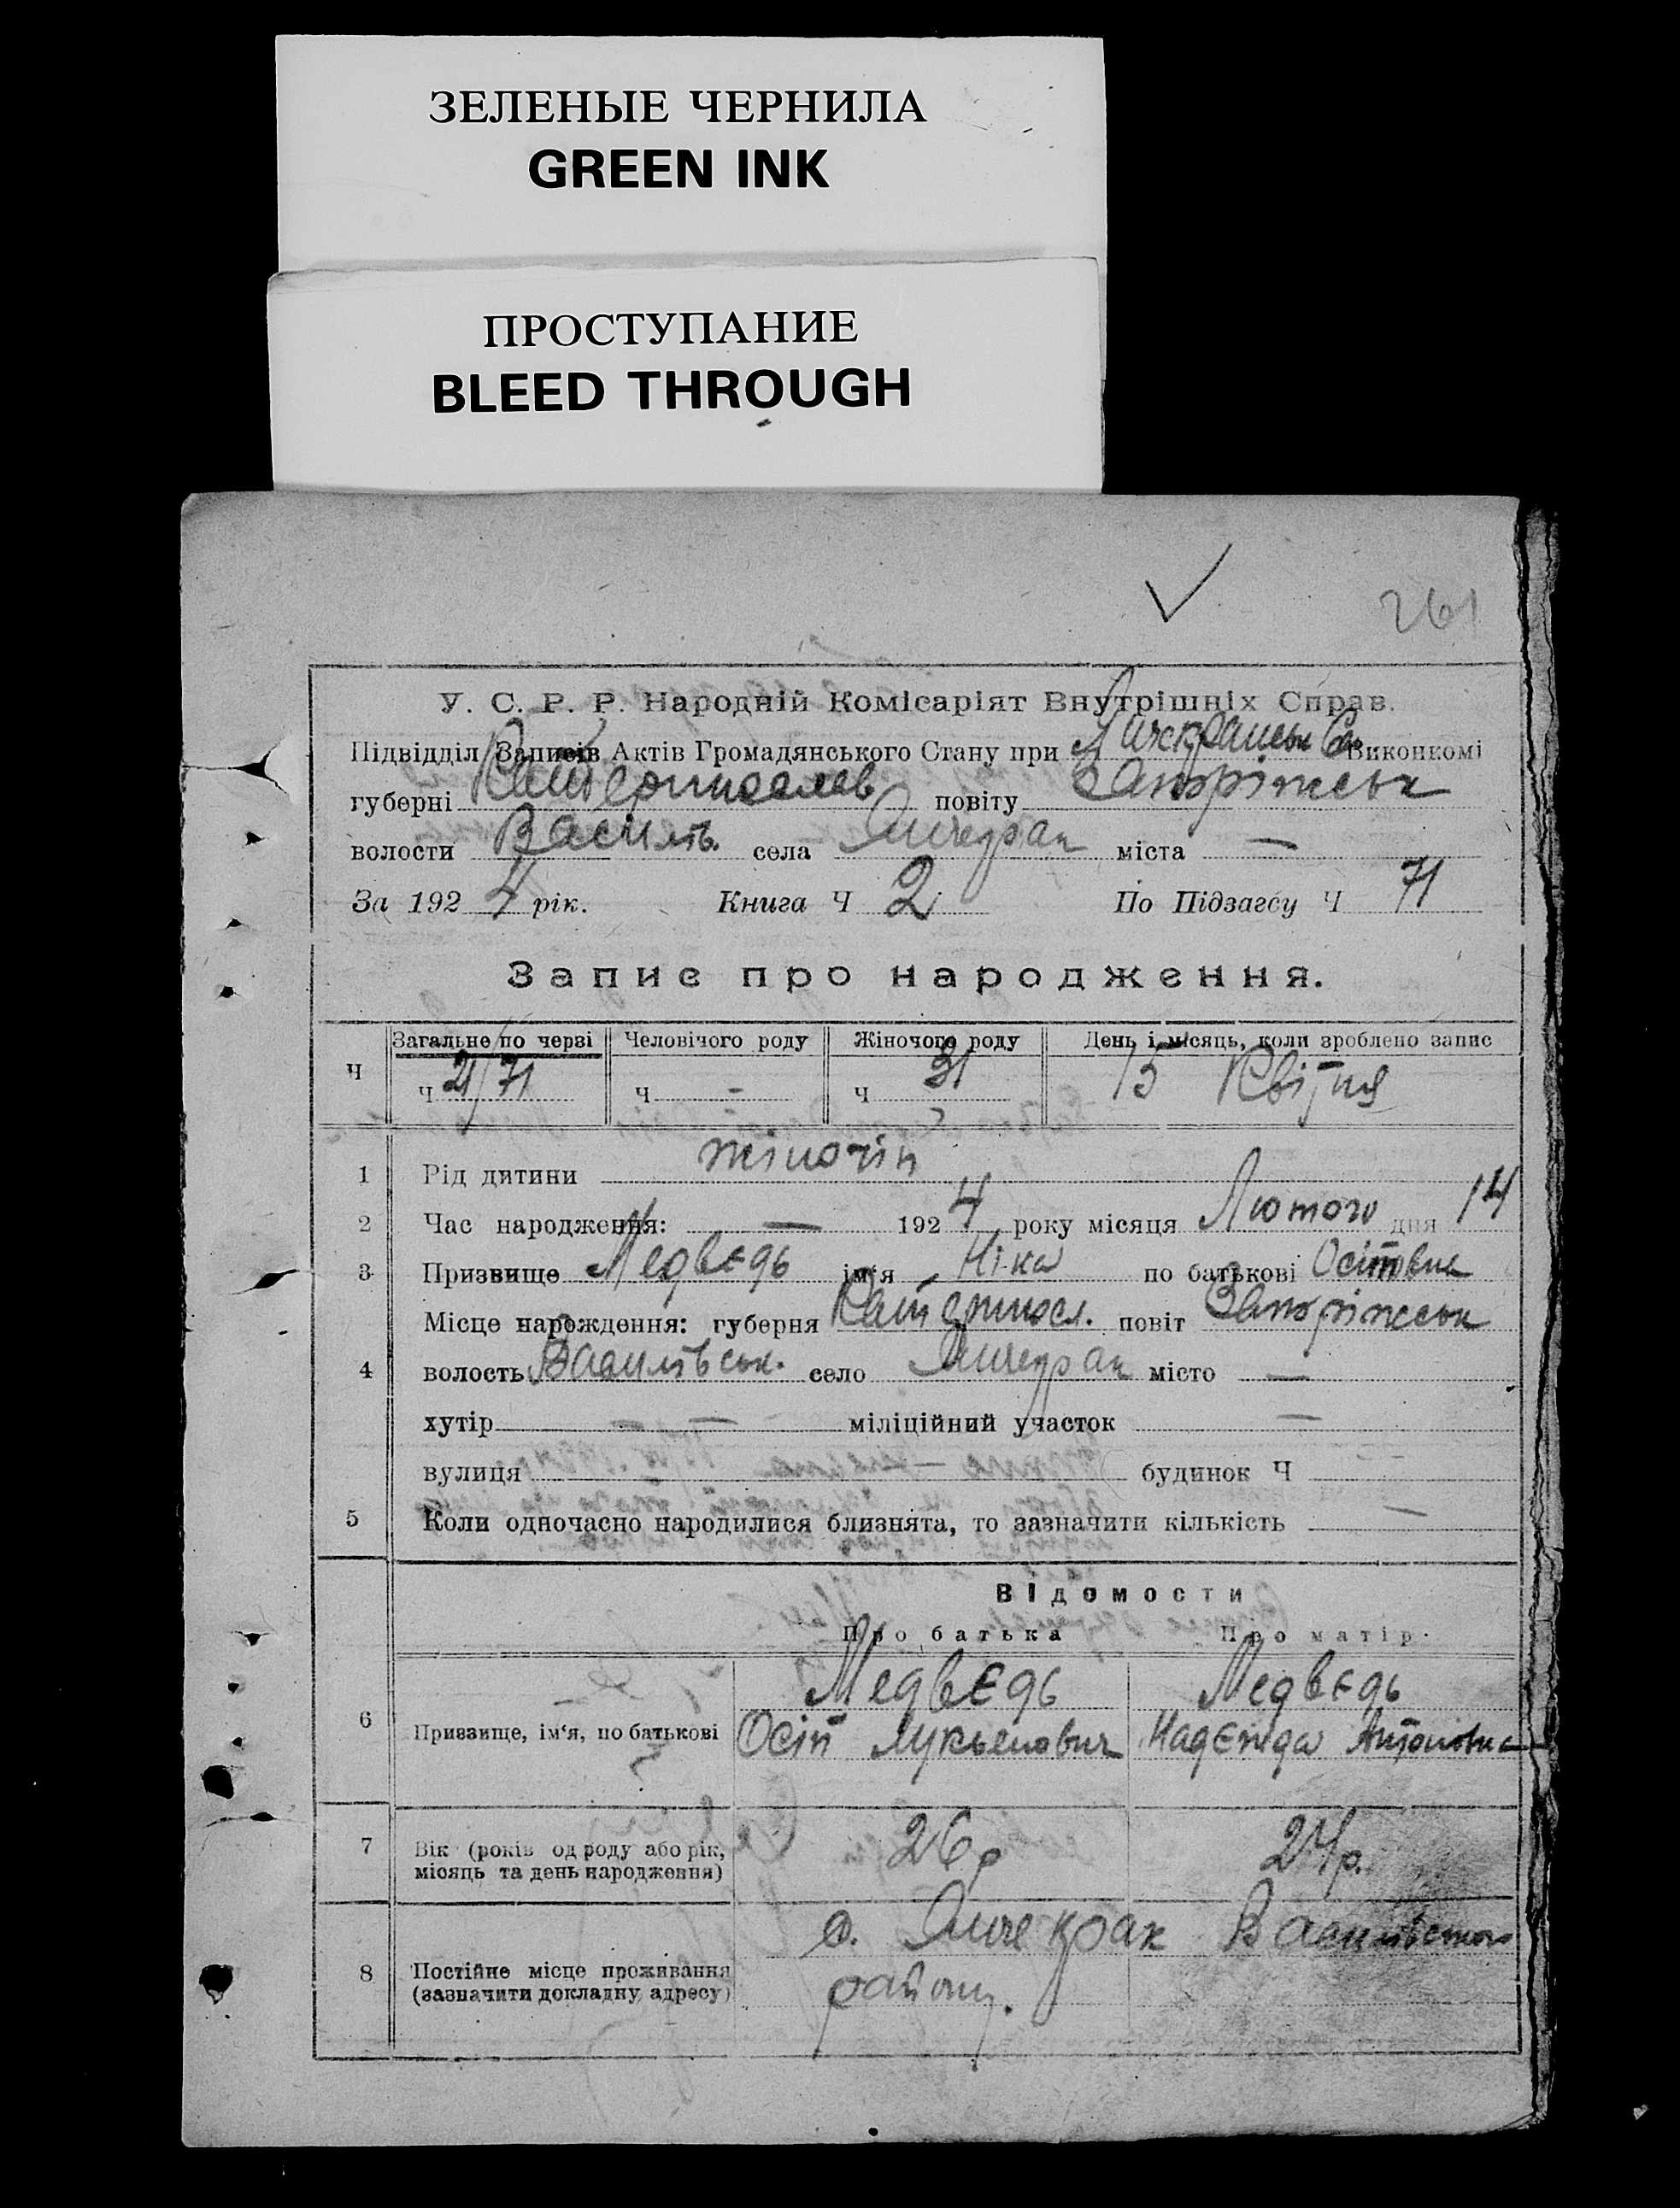 ЗЕЛЕНЫЕ ЧЕРНИЛА
GREEN INK
ПРОСТУПАНИЕ
BLEED THROUGH
261
У. С. Р. Р. Народній Комісаріят Внутрішніх Справ.
Підвідділ Записів Актів Громадянського Стану при Виконкомі
губерні Катеринослав повіту Запоріжськ
волости Василів. села Янчекрак міста —
За 192 4 рік. Книга Ч 2 По Підзагсу Ч 71
Запис про народження.
Загальне по черзі Человічого роду Жіночого роду День і місяць, коли зроблено запис
Ч Ч 2/71 Ч - Ч 31 15 Квітня
1 Рід дитини жіночій
2 Час народження: — 192 4 року місяця Лютого дня 14
3 Призвище Медвєдь ім'я Ніка по батькові Осіповна
Місце нарождення: губерня Катеринosл. повіт Запоріжськ
4 волость Василівськ. село Янчекрак місто —
хутір — — міліційний участок —
вулиця будинок Ч
5 Коли одночасно народилися близнята, то зазначити кількість —
Відомости
Про батька Про матір
Медвєдь Медвєдь
6 Призвище, ім'я, по батькові Осіп Лукьенович Надєжда Антоновна
7 Вік (років од роду або рік, 26 р 24 р.
місяць та день народження)
с. Янчекрак Василівського
8 Постійне місце проживання району.
(зазначити докладну адресу)